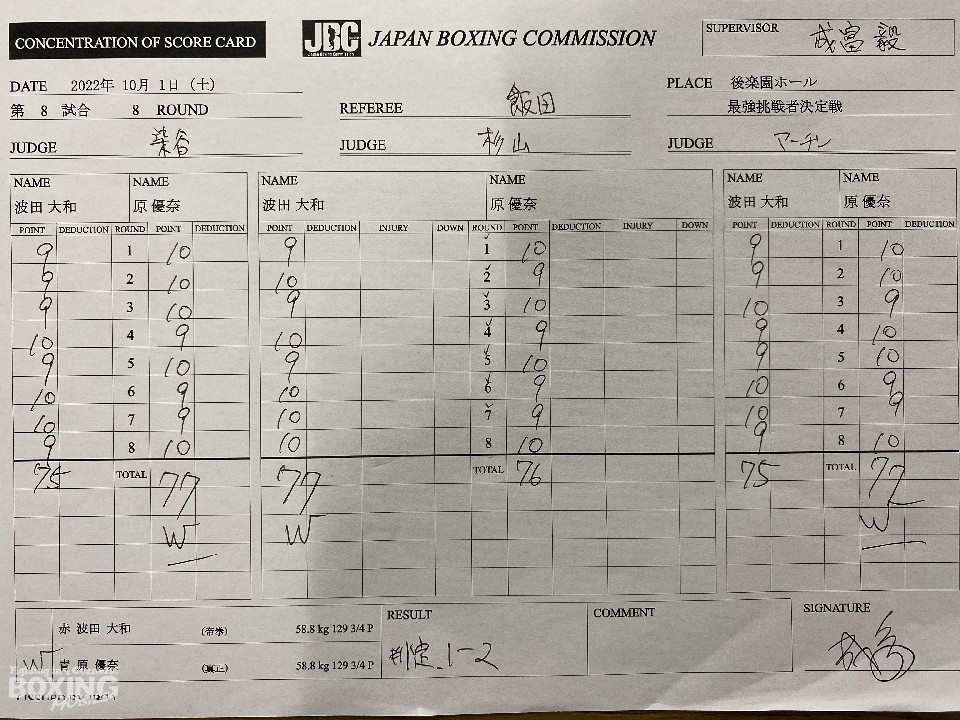 CONCENTRATION OF SCORE CARD
JBC JAPAN BOXING COMMISSION
SUPERVISOR 成富 毅
DATE 2022年 10月 1日 (土)
PLACE 後楽園ホール
第 8 試合 8 ROUND
REFEREE 飯田
最強挑戦者決定戦
JUDGE 染谷
JUDGE 杉山
JUDGE マーチン
NAME NAME NAME NAME NAME NAME
波田 大和 原 優奈 波田 大和 原 優奈 波田 大和 原 優奈
POINT DEDUCTION ROUND POINT DEDUCTION POINT DEDUCTION INJURY DOWN ROUND POINT DEDUCTION INJURY DOWN POINT DEDUCTION ROUND POINT DEDUCTION
9 1 10 9 1 10 9 1 10
9 2 10 10 2 9 9 2 10
9 3 10 9 3 10 10 3 9
10 4 9 10 4 9 9 4 10
9 5 10 9 5 10 9 5 10
10 6 9 10 6 9 10 6 9
10 7 9 10 7 9 10 7 9
9 8 10 10 8 10 9 8 10
75 TOTAL 77 77 TOTAL 76 75 TOTAL 77
W W W
RESULT
COMMENT
SIGNATURE
赤 波田 大和 (帝拳) 58.8 kg 129 3/4 P
判定 1-2
W 青 原 優奈 (真正) 58.8 kg 129 3/4 P
BOXING
MOBILE